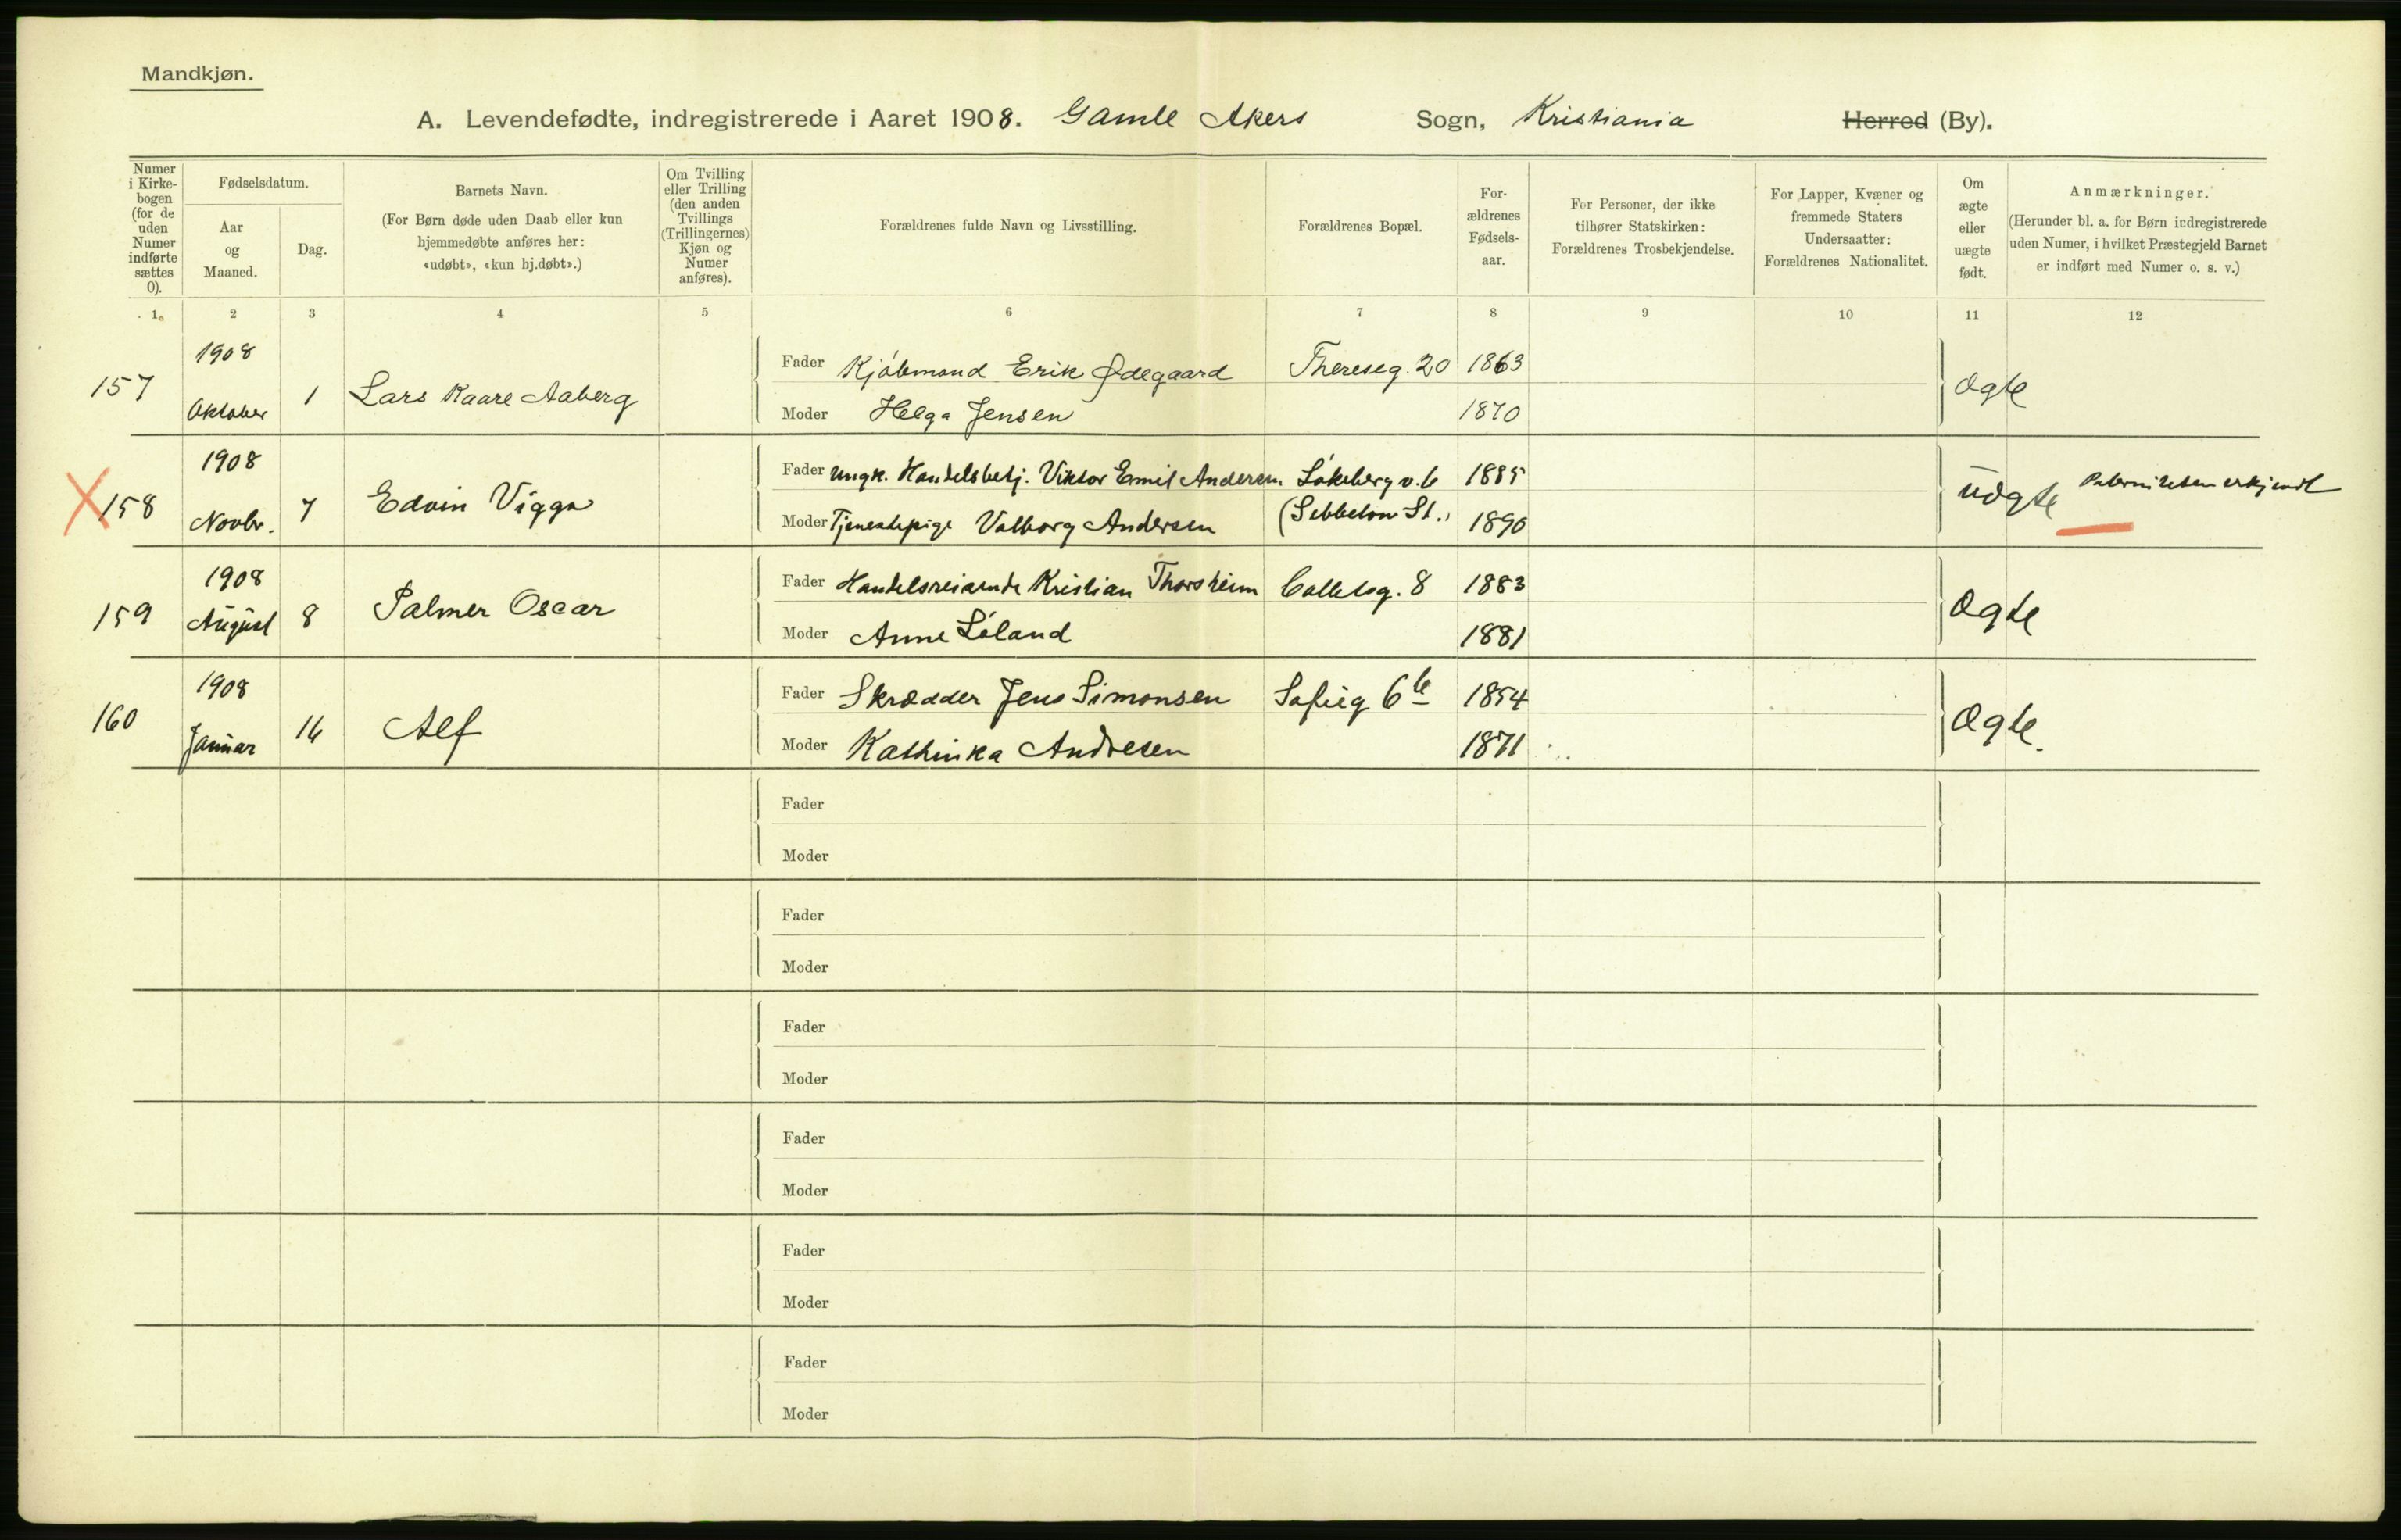 Mandkjøn.
A. Levendefødte, indregistrerede i Aaret 1908. Gamle Akers Sogn, Kristiania Herred (By).
Numer i Kirke-bogen (for de uden Numer indførte sættes 0).
Fødselsdatum.
Aar og Maaned.
Dag.
Barnets Navn.
(For Børn døde uden Daab eller kun hjemmedøbte anføres her: «udøbt», «kun hj.døbt».)
Om Tvilling eller Trilling (den anden Tvillings (Trillingernes) Kjøn og Numer anføres).
Forældrenes fulde Navn og Livsstilling.
Forældrenes Bopæl.
For-ældrenes Fødsels-aar.
For Personer, der ikke tilhører Statskirken: Forældrenes Trosbekjendelse.
For Lapper, Kvæner og fremmede Staters Undersaatter: Forældrenes Nationalitet.
Om ægte eller uægte født.
Anmærkninger.
(Herunder bl. a. for Børn indregistrerede uden Numer, i hvilket Præstegjeld Barnet er indført med Numer o. s. v.)
1. 2 3 4 5 6 7 8 9 10 11 12
157 1908 Oktober 1 Lars Kaare Aaberg
Fader Kjøbmand Erik Ødegaard Thereseg. 20 1863
Moder Helga Jensen 1870
ægte
X 158 1908 Novbr. 7 Edvin Viggo
Fader Ungk. Handelsbetj. Viktor Emil Andersen Løkeberg v. 6 1885
Moder Tjenestepige Valborg Andersen (Sebbelows St.) 1890
uægte Paterniteten erkjendt
159 1908 August 8 Palmer Oscar
Fader Handelsreisende Kristian Thorsheim Colletsg. 8 1883
Moder Anne Løland 1881
ægte
160 1908 Januar 16 Alf
Fader Skrædder Jens Simonsen Sofieg 6 b 1854
Moder Kathinka Andresen 1871
ægte.
Fader
Moder
Fader
Moder
Fader
Moder
Fader
Moder
Fader
Moder
Fader
Moder